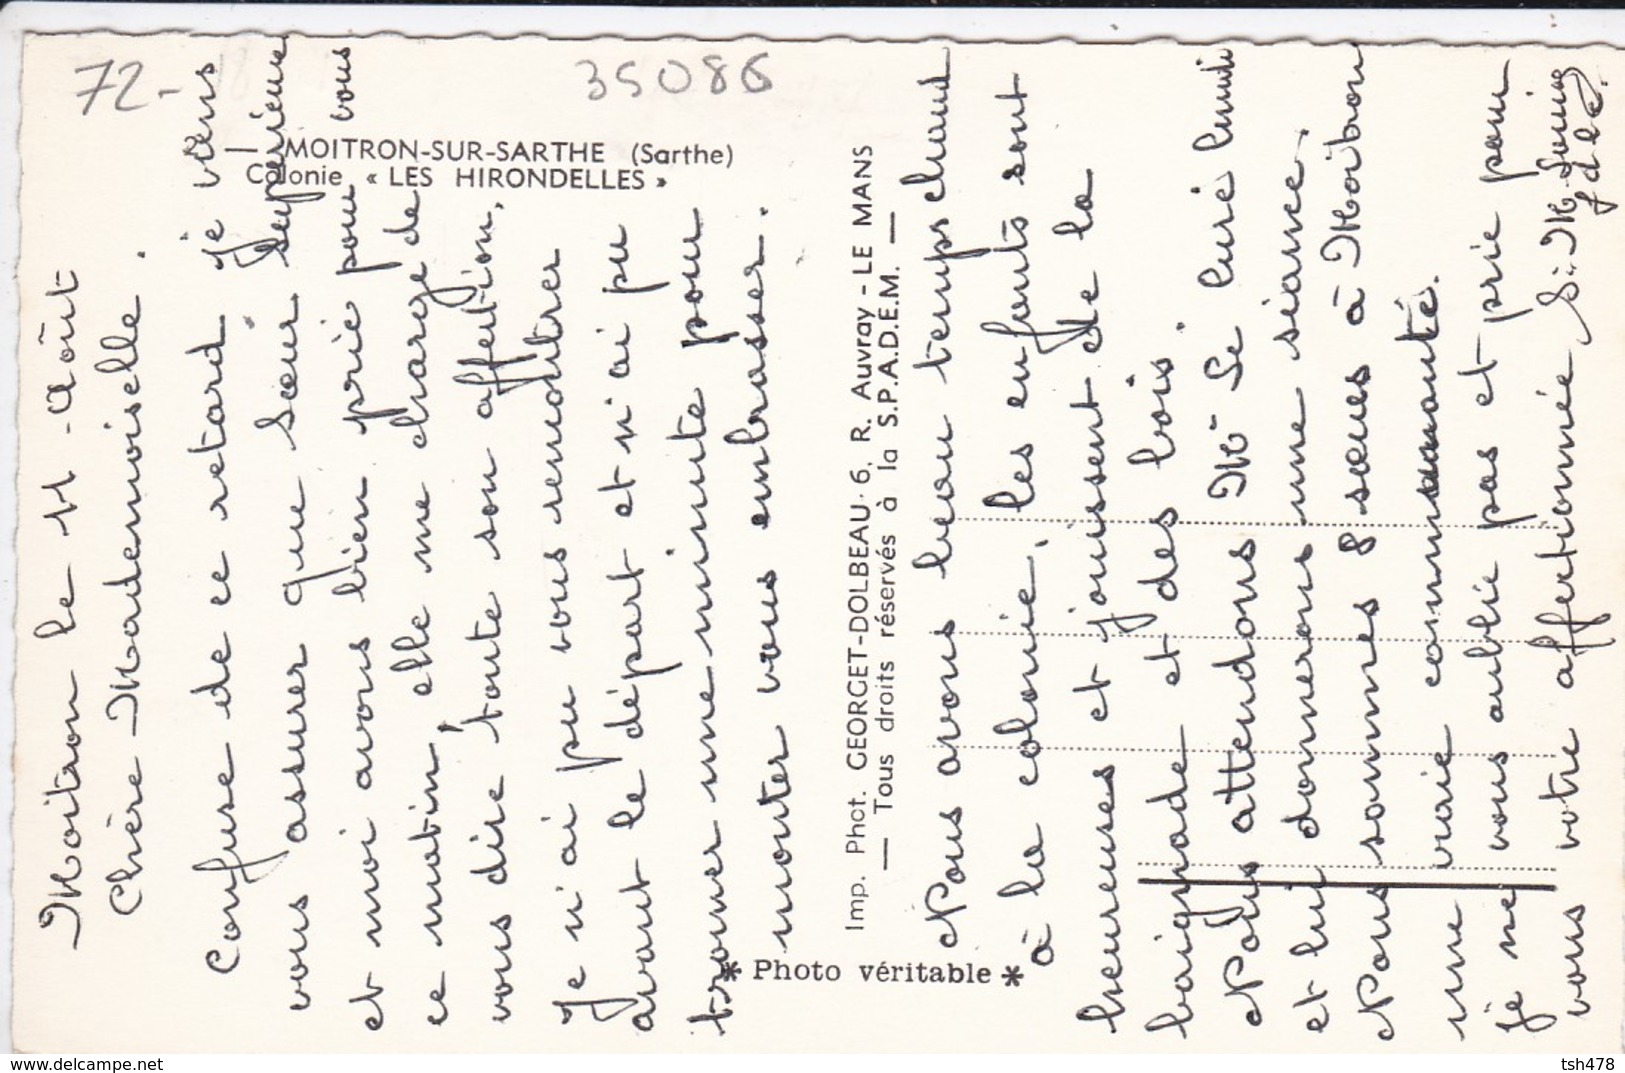 72-
35086
MOITRON-SUR-SARTHE (Sarthe)
Colonie « LES HIRONDELLES »
Moitron le 11 - Août
Chère Mademoiselle.
Confuse de ce retard je viens
vous assurer que Sœur Supérieure
et moi avons bien prié pour vous
ce matin, elle me charge de
vous dire toute son affection,
Je n'ai pu vous remontrer
avant le départ et n'ai pu
trouver une minute pour
monter vous embrasser.
Imp. Phot. GEORGET-DOLBEAU - 6, R. Auvray - LE MANS
— Tous droits réservés à la S.P.A.D.E.M. —
* Photo véritable *
Nous avons beau temps chaud
à la colonie, les enfants sont
heureuses et jouissent de la
baignade et des bois.
Nous attendons Mr Le Curé lundi
et lui donnerons une séance.
Nous sommes 8 sœurs à Moitron
une vraie communauté.
je ne vous oublie pas et prie pour
vous votre affectionnée Sr M Louise
f d l c.
delcampe.net
tsh478